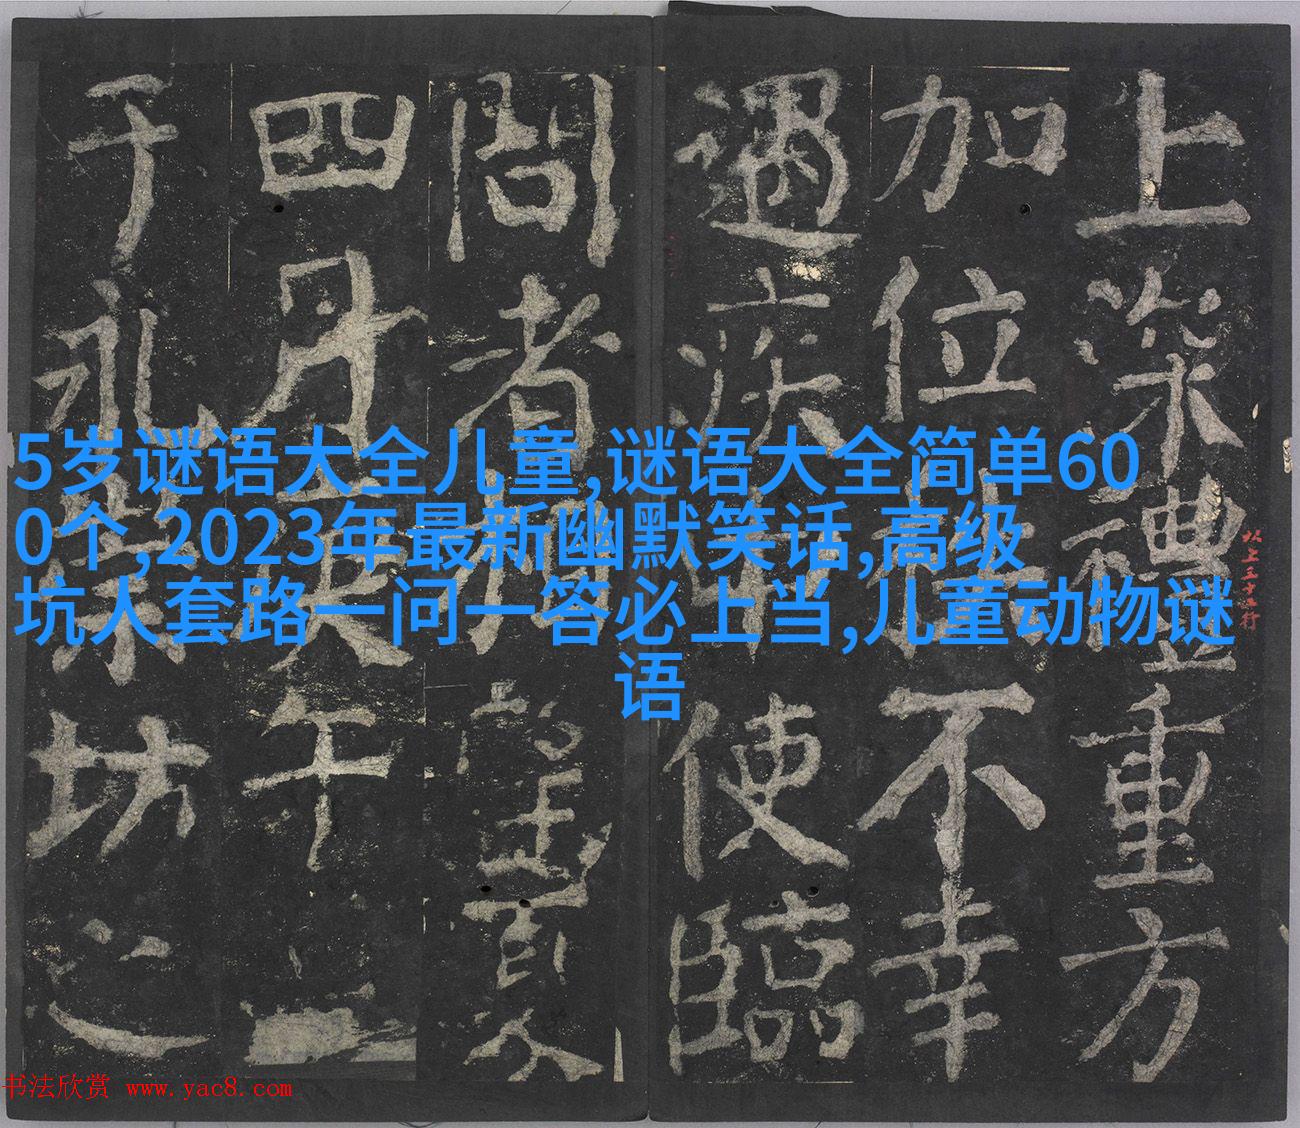 上深禮重方
加位不幸
遇疾使臨
問者相望夏
四月午
于永崇坊之
5岁谜语大全儿童,谜语大全简单60
0个,2023年最新幽默笑话,高级
坑人套路一问一答必上当,儿童动物谜
语
书法欣赏 www.yac8.com